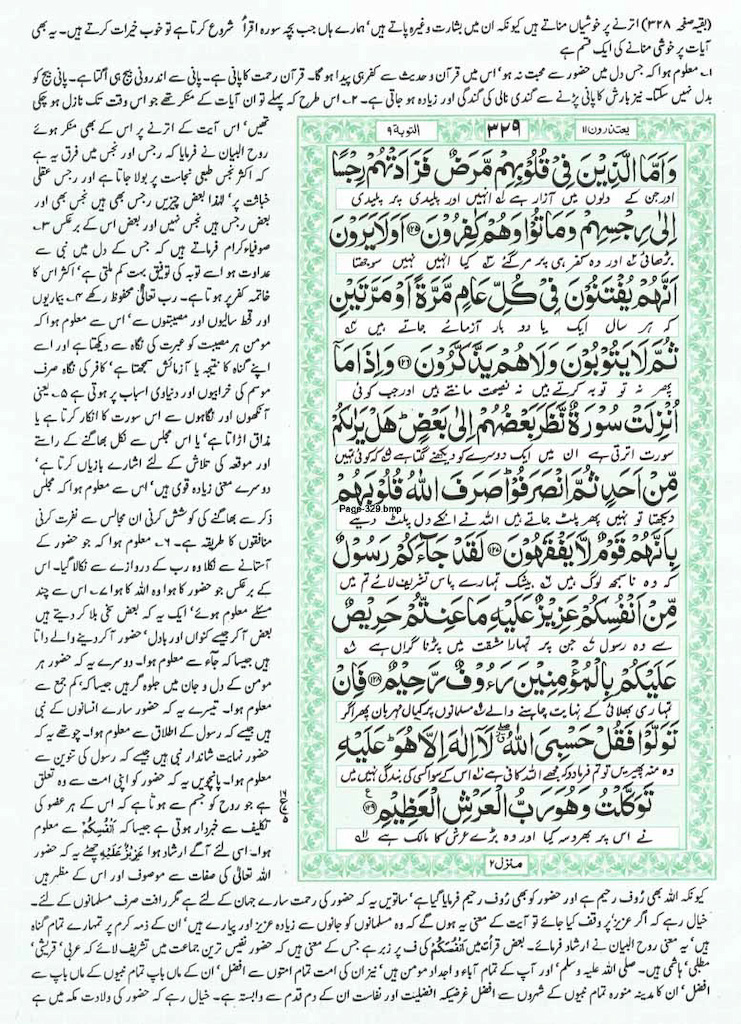 (بقیہ صفحہ ۳۲۸) اترنے پر خوشیاں مناتے ہیں کیونکہ ان میں بشارت وغیرہ پاتے ہیں، ہمارے ہاں جب بچہ سورہ اقرأ شروع کرتا ہے تو خوب خیرات کرتے ہیں۔ یہ بھی
آیات پر خوشی منانے کی ایک قسم ہے
۱۔ معلوم ہوا کہ جس دل میں حضور سے محبت نہ ہو، اس میں قرآن و حدیث سے کفر ہی پیدا ہو گا۔ قرآن رحمت کا پانی ہے۔ پانی سے اندرونی بیج ہی اگتا ہے۔ پانی بیج کو
بدل نہیں سکتا۔ نیز بارش کا پانی پڑنے سے گندی نالی کی گندگی اور زیادہ ہو جاتی ہے۔ ۲۔ اس طرح کہ پہلے تو ان آیات کے منکر تھے جو اس وقت تک نازل ہو چکی
یعتذرون ۱۱
۳۲۹
التوبة ۹
وَاَمَّا الَّذِيْنَ فِيْ قُلُوْبِهِمْ مَّرَضٌ فَزَادَتْهُمْ رِجْسًا
اور جن کے دلوں میں آزار ہے انہیں اور پلیدی پر پلیدی
اِلٰى رِجْسِهِمْ وَمَاتُوْا وَهُمْ كٰفِرُوْنَ ﴿۱۲۵﴾ اَوَلَا يَرَوْنَ
بڑھائی اور وہ کفر ہی پر مر گئے کیا انہیں نہیں سوجھتا
اَنَّهُمْ يُفْتَنُوْنَ فِيْ كُلِّ عَامٍ مَّرَّةً اَوْ مَرَّتَيْنِ
کہ ہر سال ایک یا دو بار آزمائے جاتے ہیں
ثُمَّ لَا يَتُوْبُوْنَ وَلَا هُمْ يَذَّكَّرُوْنَ ﴿۱۲۶﴾ وَاِذَا مَا
پھر نہ تو توبہ کرتے ہیں نہ نصیحت مانتے ہیں اور جب کوئی
اُنْزِلَتْ سُوْرَةٌ نَّظَرَ بَعْضُهُمْ اِلٰى بَعْضٍ هَلْ يَرٰىكُمْ
سورت اترتی ہے ان میں ایک دوسرے کو دیکھنے لگتا ہے کہ کوئی تمہیں
مِّنْ اَحَدٍ ثُمَّ انْصَرَفُوْا صَرَفَ اللّٰهُ قُلُوْبَهُمْ
Page-329.bmp
دیکھتا تو نہیں پھر پلٹ جاتے ہیں اللہ نے انکے دل پلٹ دیے
بِاَنَّهُمْ قَوْمٌ لَّا يَفْقَهُوْنَ ﴿۱۲۷﴾ لَقَدْ جَآءَكُمْ رَسُوْلٌ
کہ وہ ناسمجھ لوگ ہیں بیشک تمہارے پاس تشریف لائے تم میں
مِّنْ اَنْفُسِكُمْ عَزِيْزٌ عَلَيْهِ مَا عَنِتُّمْ حَرِيْصٌ
سے وہ رسول جن پر تمہارا مشقت میں پڑنا گراں ہے
عَلَيْكُمْ بِالْمُؤْمِنِيْنَ رَءُوْفٌ رَّحِيْمٌ ﴿۱۲۸﴾ فَاِنْ
تمہاری بھلائی کے نہایت چاہنے والے مسلمانوں پر کمال مہربان پھر اگر
تَوَلَّوْا فَقُلْ حَسْبِيَ اللّٰهُ لَآ اِلٰهَ اِلَّا هُوَ عَلَيْهِ
وہ منہ پھیریں تو تم فرما دو کہ مجھے اللہ کافی ہے اس کے سوا کسی کی بندگی نہیں میں
تَوَكَّلْتُ وَهُوَ رَبُّ الْعَرْشِ الْعَظِيْمِ ﴿۱۲۹﴾
نے اسی پر بھروسہ کیا اور وہ بڑے عرش کا مالک ہے
منزل ۲
تھیں، اس آیت کے اترنے پر اس کے بھی منکر ہوئے
روح البیان نے فرمایا کہ رجس اور نجس میں فرق یہ ہے
کہ اکثر نجس طبعی نجاست پر بولا جاتا ہے اور رجس عقلی
خباثت پر، لہٰذا بعض چیزیں رجس بھی ہیں نجس بھی اور
بعض رجس ہیں نجس نہیں اور بعض اس کے برعکس ۳۔
صوفیاء کرام فرماتے ہیں کہ جس کے دل میں نبی سے
عداوت ہو اسے توبہ کی توفیق بہت کم ملتی ہے، اکثر اس کا
خاتمہ کفر پر ہوتا ہے۔ رب تعالیٰ محفوظ رکھے ۴۔ بیماریوں
اور قحط سالیوں اور مصیبتوں سے، اس سے معلوم ہوا کہ
مومن ہر مصیبت کو عبرت کی نگاہ سے دیکھتا ہے اور اسے
اپنے گناہ کا نتیجہ یا آزمائش سمجھتا ہے، کافر کی نگاہ صرف
موسم کی خرابیوں اور دنیاوی اسباب پر ہوتی ہے ۵۔ یعنی
آنکھوں اور نگاہوں سے اس سورت کا انکار کرتا ہے یا
مذاق اڑاتا ہے، یا اس مجلس سے نکل بھاگنے کے راستے
اور موقعہ کی تلاش کے لئے اشارے بازیاں کرتا ہے،
دوسرے معنی زیادہ قوی ہیں، اس سے معلوم ہوا کہ مجلس
ذکر سے بھاگنے کی کوشش کرنی ان مجالس سے نفرت کرنی
منافقوں کا طریقہ ہے۔ ۶۔ معلوم ہوا کہ جو حضور کے
آستانے سے نکلا وہ رب کے دروازے سے نکالا گیا۔ اس
کے برعکس جو حضور کا ہوا وہ اللہ کا ہوا ۷۔ اس سے چند
مسئلے معلوم ہوئے، ایک یہ کہ بعض سخی بلا کر دیتے ہیں
بعض آکر جیسے کنواں اور بادل، حضور آکر دینے والے داتا
ہیں جیسا کہ جآء سے معلوم ہوا۔ دوسرے یہ کہ حضور ہر
مومن کے دل و جان میں جلوہ گر ہیں جیسا کہ کم جمع سے
معلوم ہوا۔ تیسرے یہ کہ حضور سارے انسانوں کے نبی
ہیں جیسے کہ رسول کے اطلاق سے معلوم ہوا۔ چوتھے یہ کہ
حضور نہایت شاندار نبی ہیں جیسے کہ رسول کی تنوین سے
معلوم ہوا۔ پانچویں یہ کہ حضور کو اپنی امت سے وہ تعلق
ہے جو روح کو جسم سے ہوتا ہے کہ اس کے ہر عضو کی
تکلیف سے خبردار ہوتی ہے جیسا کہ اَنْفُسِكُمْ سے معلوم
ہوا۔ اسی لئے آگے ارشاد ہوا عَزِيْزٌ عَلَيْهِ چھٹے یہ کہ حضور
اللہ تعالٰی کی صفات سے موصوف اور اس کے مظہر ہیں
کیونکہ اللہ بھی رؤف رحیم ہے اور حضور کو بھی رؤف رحیم فرمایا گیا ہے، ساتویں یہ کہ حضور کی رحمت سارے جہان کے لئے ہے مگر رافت صرف مسلمانوں کے لئے۔
خیال رہے کہ اگر عزیز پر وقف کیا جائے تو آیت کے معنی یہ ہوں گے کہ وہ مسلمانوں کو جانوں سے زیادہ عزیز اور پیارے ہیں، ان کے ذمہ کرم پر تمہارے تمام گناہ
ہیں، یہ معنی روح البیان نے ارشاد فرمائے۔ بعض قرأت میں اَنْفَسِكُمْ کی ف پر زبر ہے جس کے معنی ہیں کہ حضور نفیس ترین جماعت میں تشریف لائے کہ عربی، قریشی،
مطلبی، ہاشمی ہیں۔ صلی اللہ علیہ وسلم، اور آپ کے تمام آباء و اجداد مومن ہیں، نیز ان کی امت تمام امتوں سے افضل، ان کے ماں باپ تمام نبیوں کے ماں باپ سے
افضل، ان کا مدینہ منورہ تمام نبیوں کے شہروں سے افضل غرضیکہ افضلیت اور نفاست ان کے دم قدم سے وابستہ ہے۔ خیال رہے کہ حضور کی ولادت مکہ میں ہے